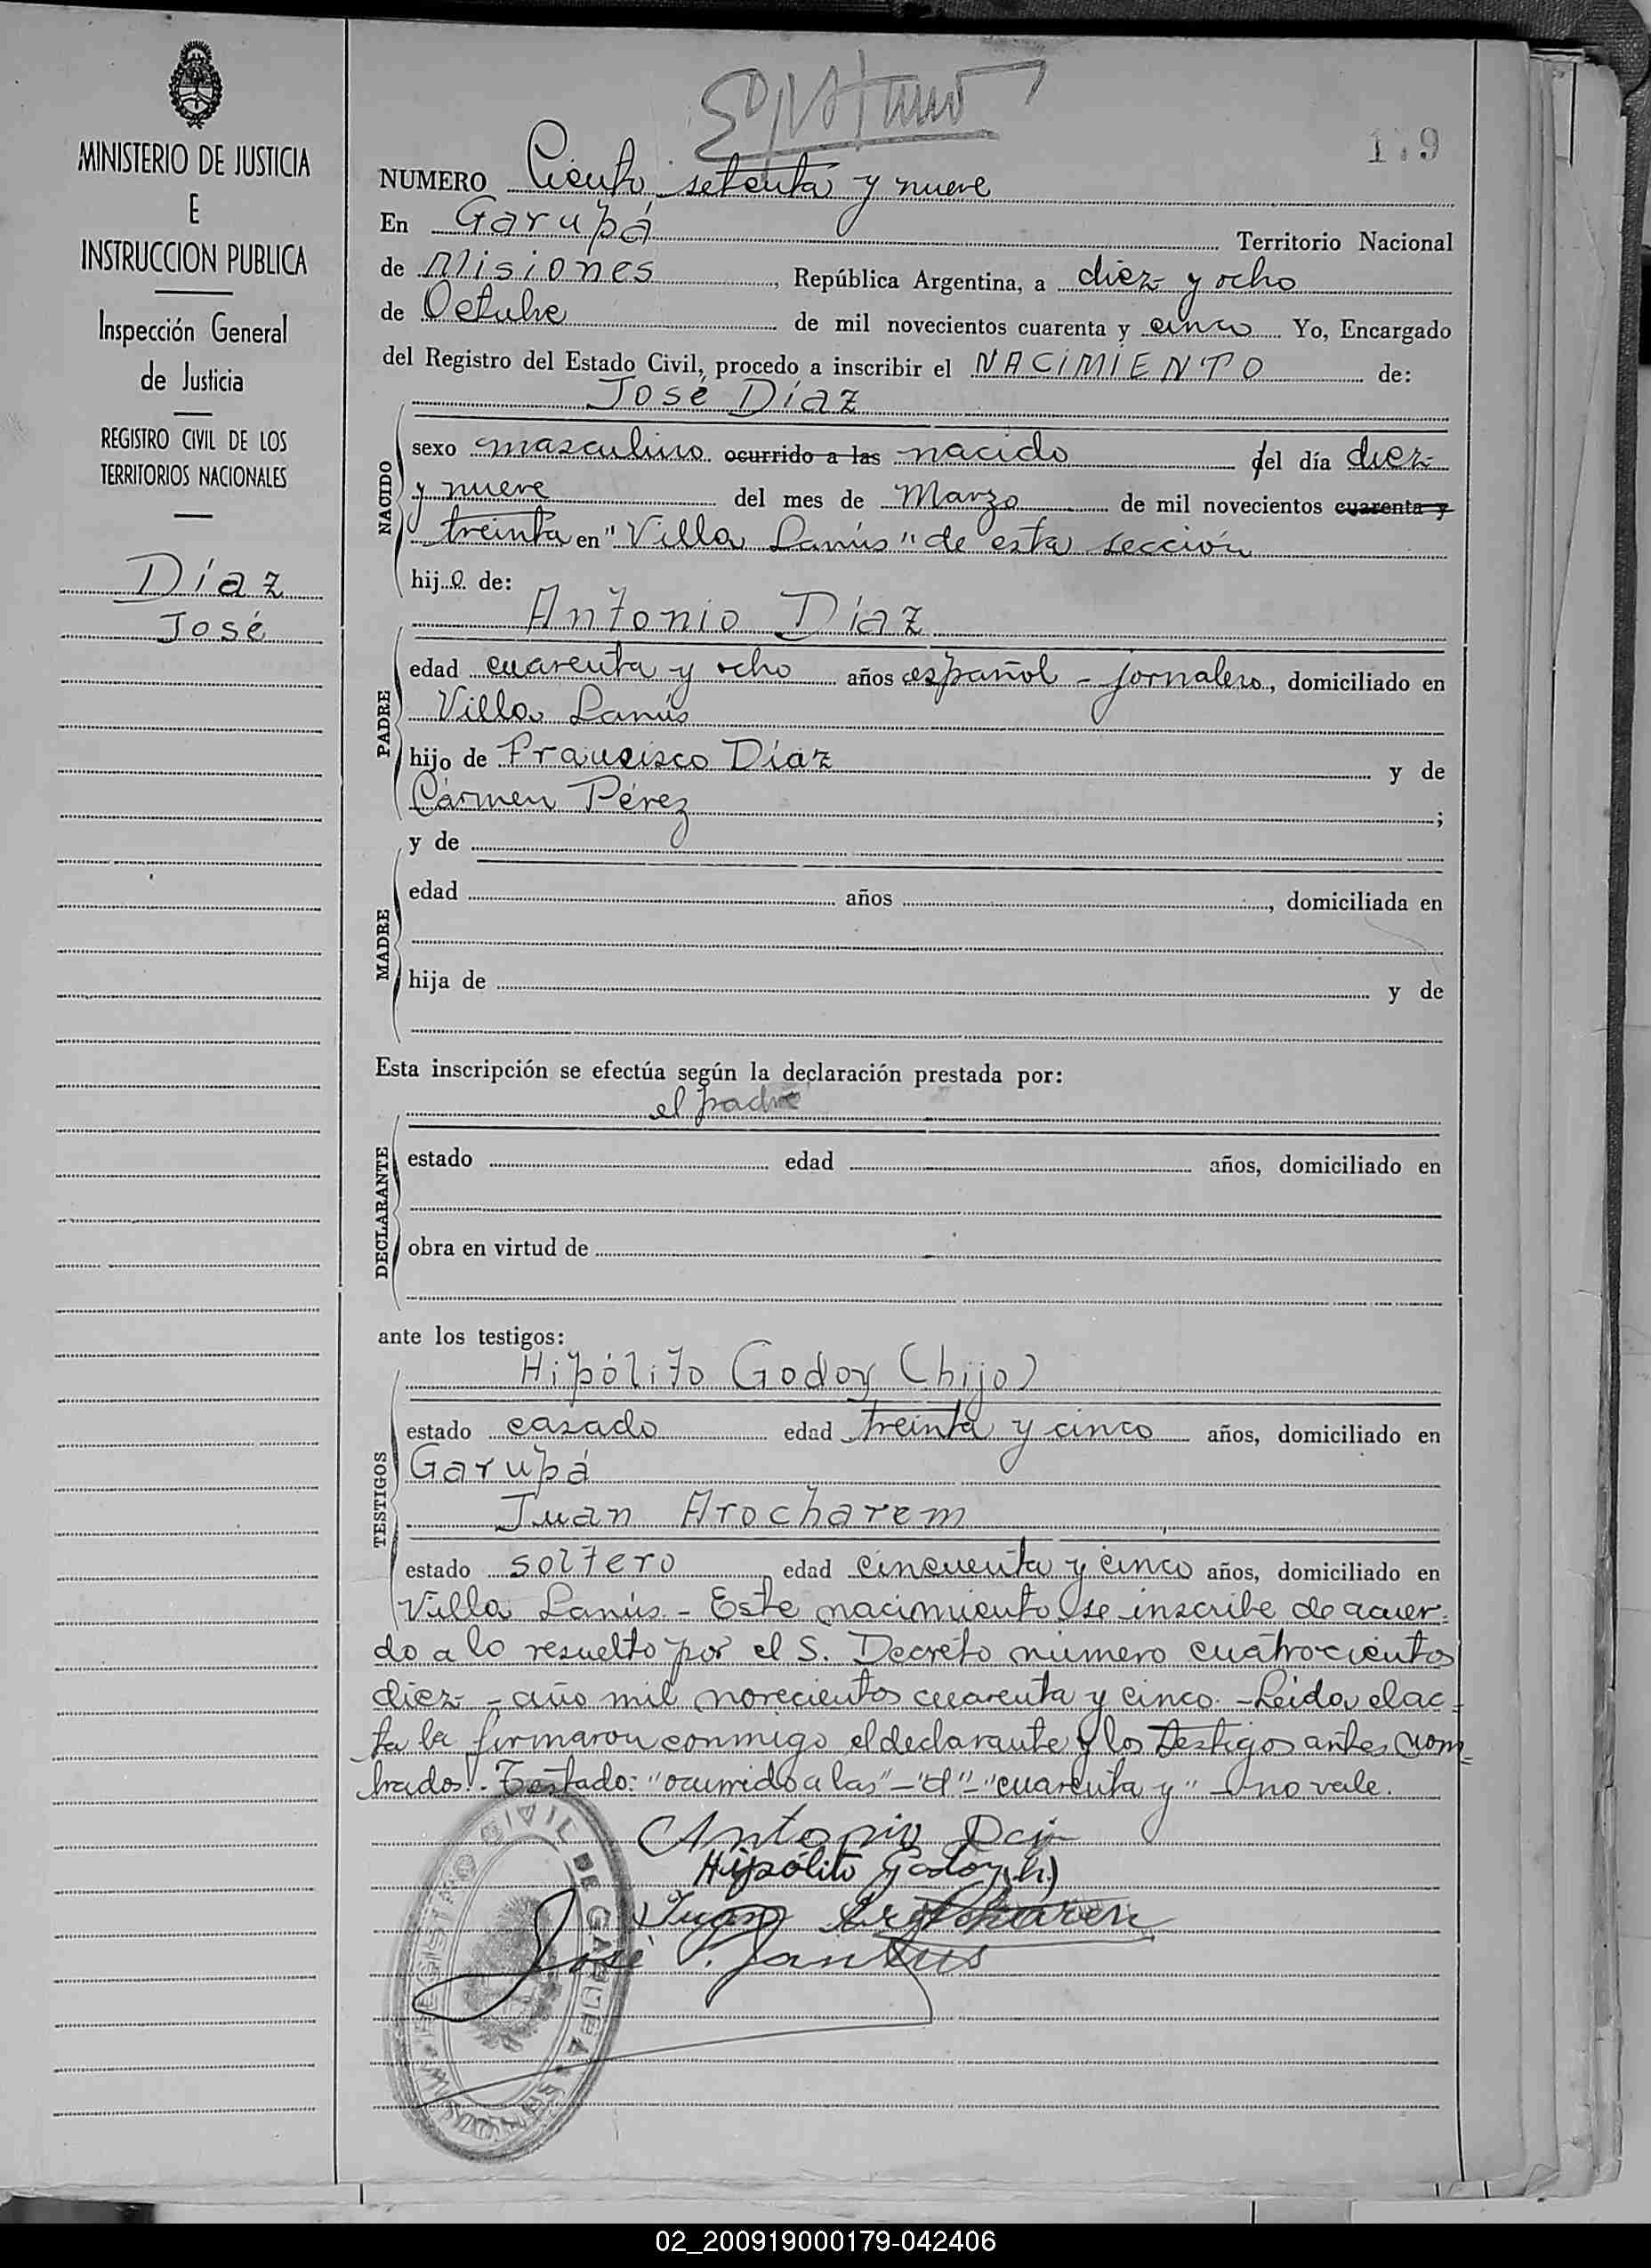 MINISTERIO DE JUSTICIA
E
INSTRUCCION PUBLICA
Inspección General
de Justicia
REGISTRO CIVIL DE LOS
TERRITORIOS NACIONALES
Díaz
José
179
NUMERO Ciento setenta y nueve
En Garupá Territorio Nacional
de Misiones, República Argentina, a diez y ocho
de Octubre de mil novecientos cuarenta y cinco Yo, Encargado
del Registro del Estado Civil, procedo a inscribir el NACIMIENTO de:
José Díaz
NACIDO
sexo masculino ocurrido a las nacido del día diez
y nueve del mes de Marzo de mil novecientos cuarenta y
treinta en "Villa Lanús" de esta sección
hijo de:
Antonio Díaz
PADRE
edad cuarenta y ocho años español - jornalero, domiciliado en
Villa Lanús
hijo de Francisco Díaz y de
Cármen Pérez;
y de
MADRE
edad años , domiciliada en
hija de y de
Esta inscripción se efectúa según la declaración prestada por:
el padre
DECLARANTE
estado edad años, domiciliado en
obra en virtud de
ante los testigos:
Hipólito Godoy (hijo)
TESTIGOS
estado casado edad treinta y cinco años, domiciliado en
Garupá
Juan Arocharem
estado soltero edad cincuenta y cinco años, domiciliado en
Villa Lanús - Este nacimiento se inscribe de acuer-
do a lo resuelto por el S. Decreto número cuatrocientos
diez - año mil novecientos cuarenta y cinco. - Leida el ac-
ta la firmaron conmigo el declarante y los testigos antes nom-
brados. - Testado: "ocurrido a las" - "d" - "cuarenta y" - no vale.
Antonio
Hipólito Godoy (h.)
Juan Arocharem
José
REGISTRO CIVIL DE GARUPA
MISIONES
02_200919000179-042406